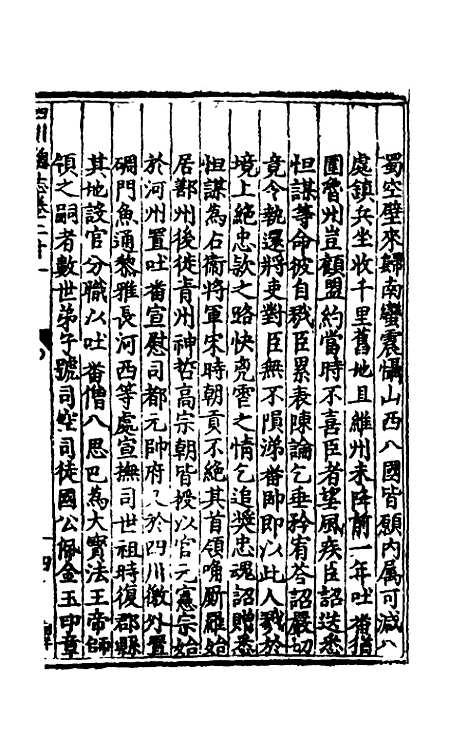 蜀空壁來歸南蠻震懾山西八國皆願內属可減八
處鎮兵坐收千里舊地且維州未降前一年吐蕃猶
圍魯州豈顧盟約當時不喜臣者望風疾臣詔送悉
怛謀等命彼自戮臣累表陳論乞垂矜宥荅詔嚴切
竟令執還將吏對臣無不隕涕蕃帥即以此人戮於
境上絶忠欵之路快兇霅之情乞追奬忠魂詔贈悉
怛謀為右衛將軍宋時朝貢不絶其首領唃厮羅始
居鄯州後徙青州神哲高宗朝皆授以官元憲宗始
於河州置吐蕃宣慰司都元帥府又於四川徼外置
碉門魚通黎雅長河西等處宣撫司世祖時復郡縣
其地設官分職以吐蕃僧八思巴為大寳法王帝師
領之嗣者數世弟子號司空司徒國公佩金玉印章
四川總志卷二十一
四